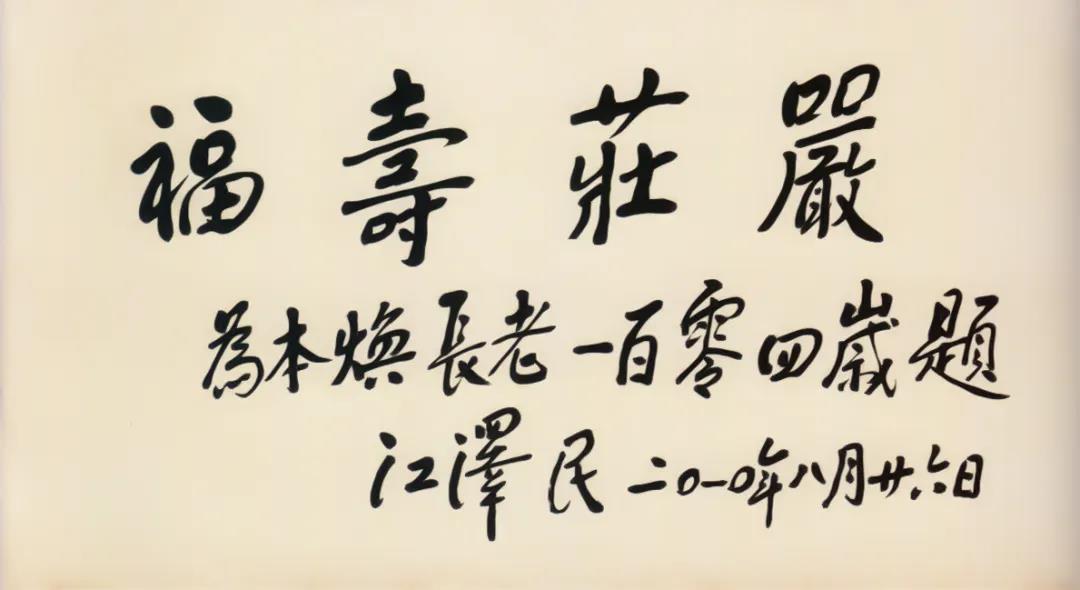 福壽莊嚴
為本煥長老一百零四歲題
江澤民 二〇一〇年八月廿六日